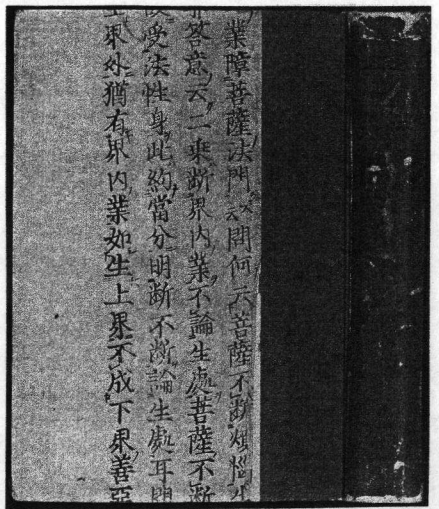 業障菩薩法門文云問何云菩薩不断煩悩
答意云二乗断界内業不論生處菩薩不断
受法性身此約當分明断不断論生處耳問
界外猶有界内業如生上界不成下界善惡